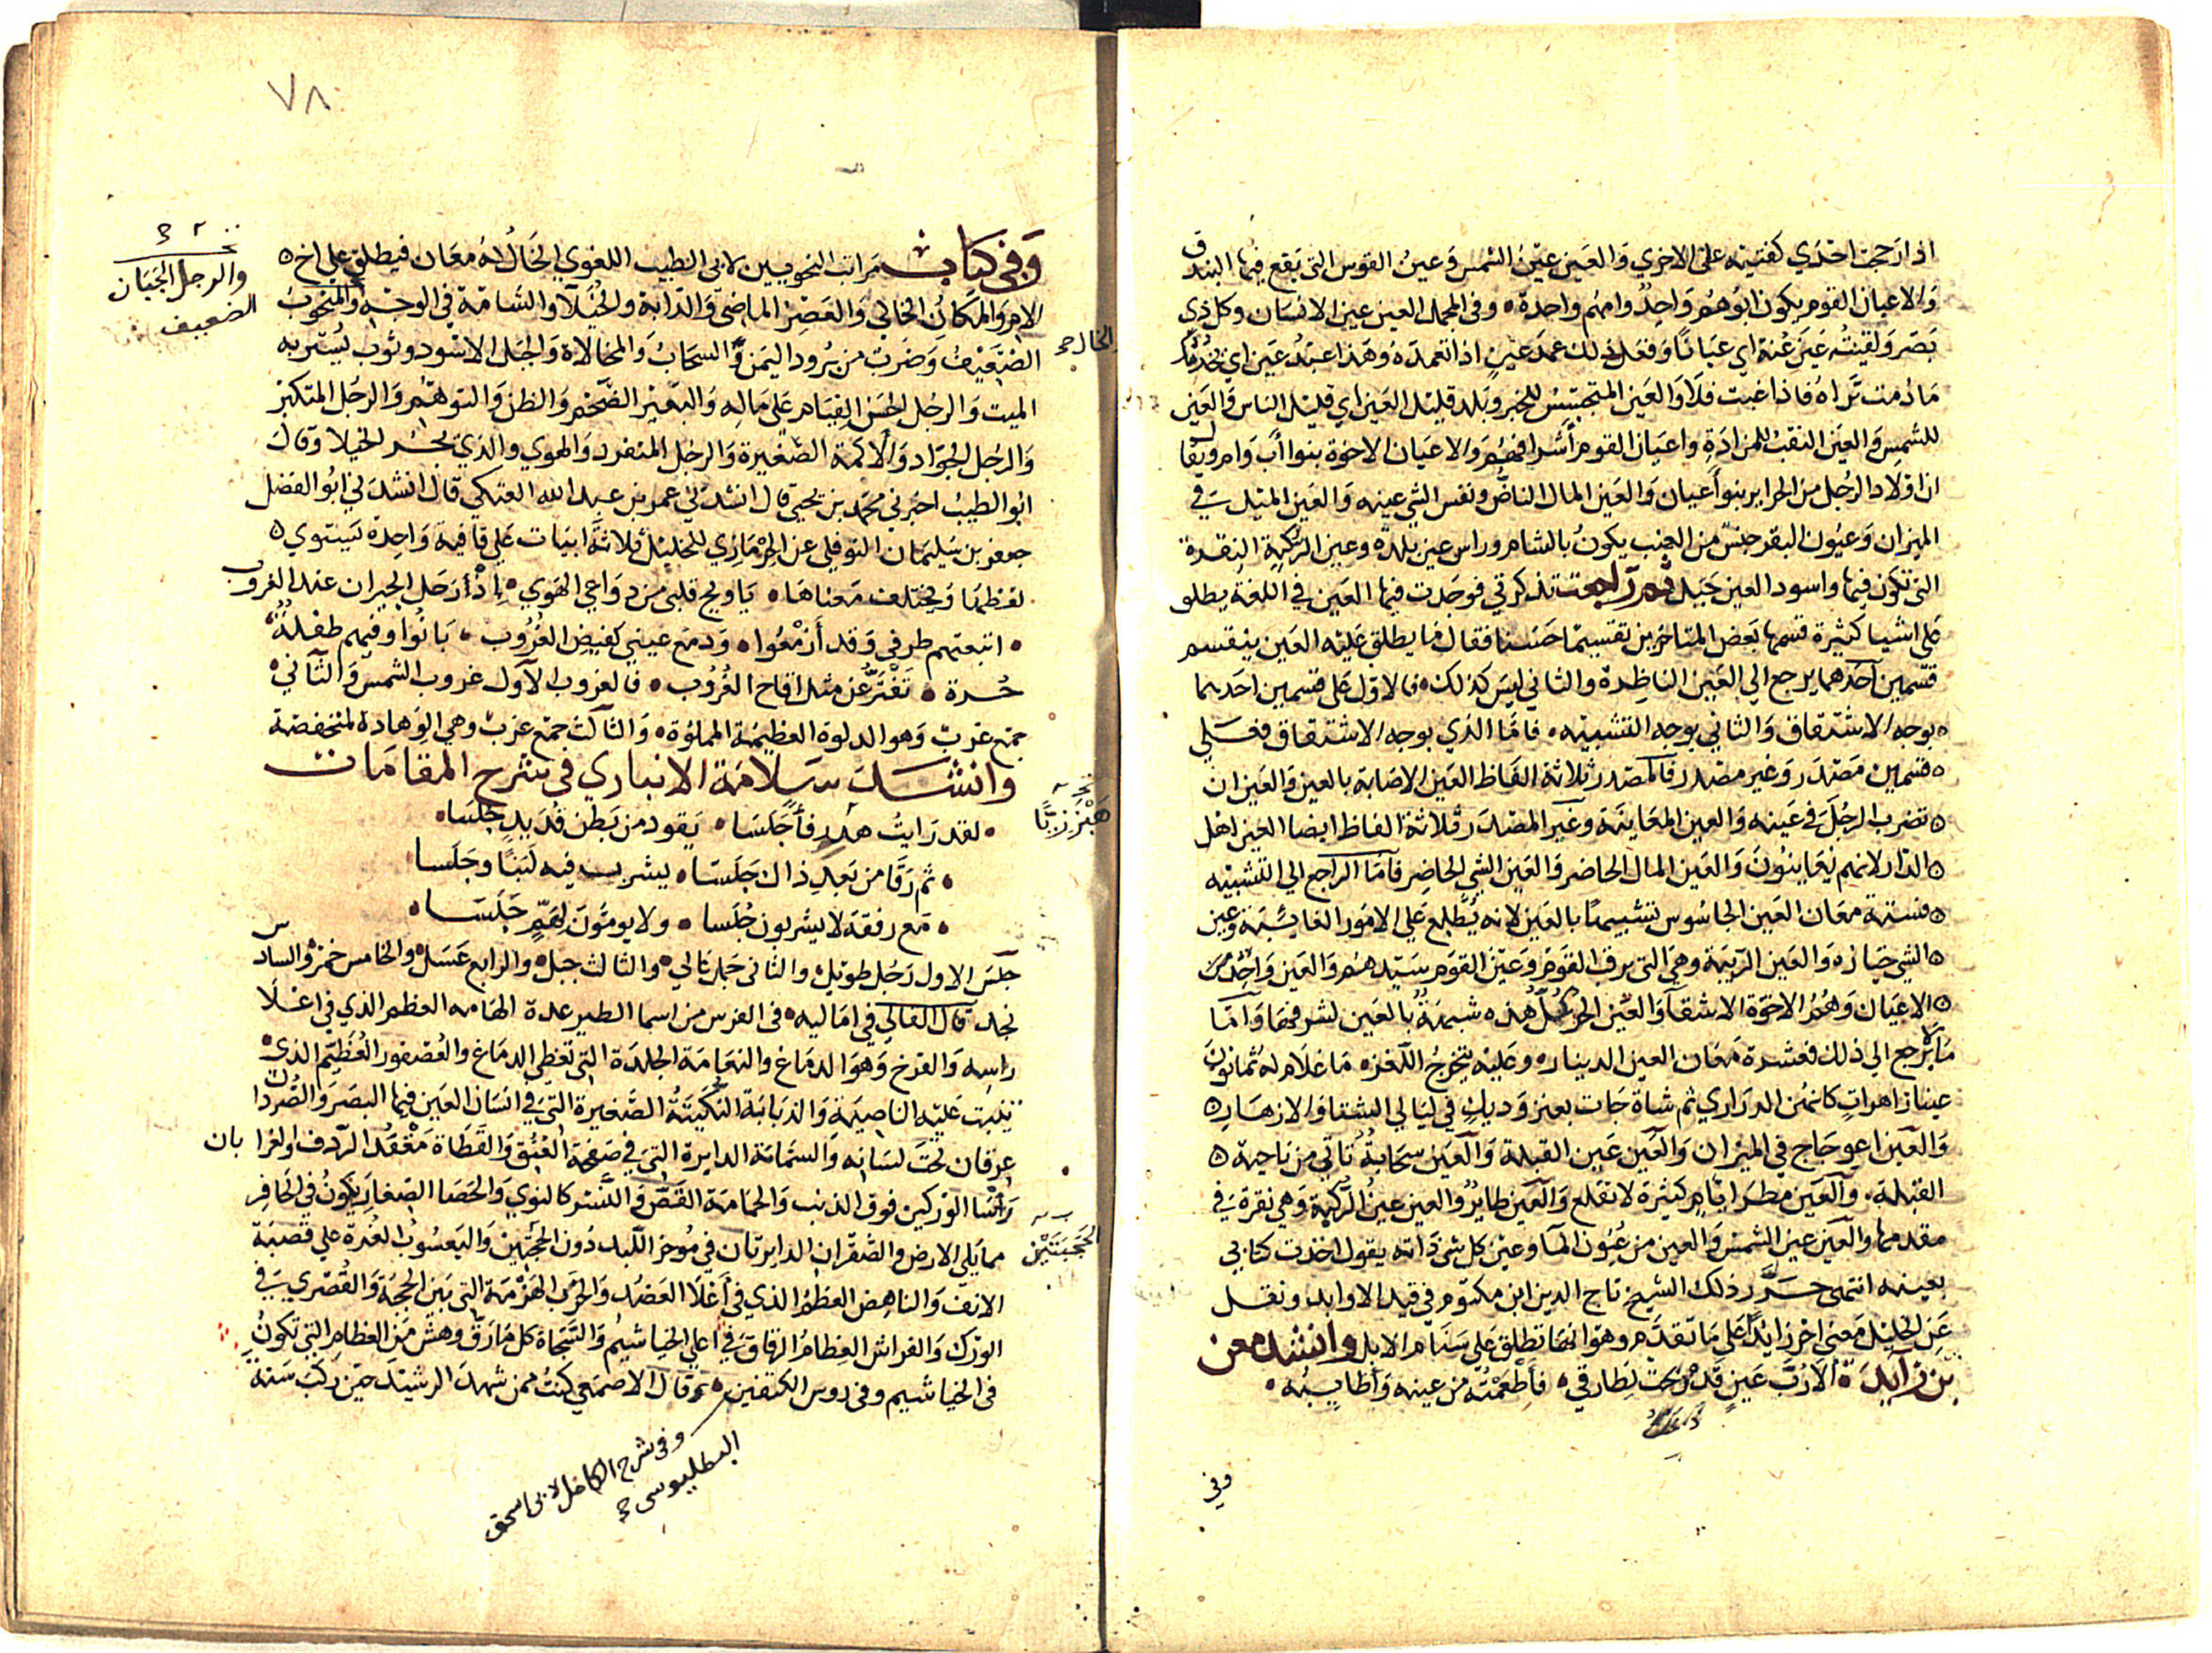 اذا رجحت احدي كفتيه على الاخري والعين عين الشمس وعين القوس التي يقع فيها البندق
والاعيان القوم يكون ابوهم واحد وامهم واحدة وفي المجمل العين عين الانسان وكل ذي
بصر ولقيته عين عنة اي عيانا وفعل ذلك عمد عين اذا تعمده وهذا عبد عين اي يخدمك
ما دمت تراه فاذا غبت فلا والعين المتجسس للخبر وبلد قليل العين اي قليل الناس والعين
للشمس والعين النقب للمزادة واعيان القوم أشرافهم والاعيان الاخوة بنوا أب وام ويقال
ان اولاد الرجل من الحراير بنو أعيان والعين المال الناض ونفس الشي عينه والعين الميل في
الميزان وعيون البقر جنس من العنب يكون بالشام وراس عين بلدة وعين الركبة النقرة
التي تكون فيها واسود العين جبل ثم راجعت تذكرتي فوجدت فيها العين في اللغة يطلق
على اشيا كثيرة قسمها بعض المتاخرين تقسيما حسنا فقال ما يطلق عليه العين ينقسم
قسمين أحدهما يرجع الي العين الناظرة والثاني ليس كذلك فالاول على قسمين احدهما
بوجه الاشتقاق والثاني بوجه التشبيه فاما الذي بوجه الاشتقاق فعلي
قسمين مصدر وغير مصدر فالمصدر ثلاثة الفاظ العين الاصابة بالعين والعين ان
تضرب الرجل في عينه والعين المعاينة وغير المصدر ثلاثة الفاظ ايضا العين اهل
الدار لانهم يعاينون والعين المال الحاضر والعين الشي الحاضر فأما الراجع الي التشبيه
فستة معان العين الجاسوس تشبيها بالعين لانه يطلع على الامور الغائبة وعين
الشي خياره والعين الربيئة وهي التي يرقب القوم وعين القوم سيدهم والعين واحد من
الاعيان وهم الاخوة الاشقآ والعين الحر كل هذه شبهة بالعين لشرفها وأما
مالا يرجع الي ذلك فعشرة معان العين الدينار وعليه يتخرج اللغز ما غلام له ثمانون
عينا زاهرات كانهن الدراري ثم شاة جات بعنز وديك في ليالي الشتا والازهار
والعين اعوجاج في الميزان والعين عين القبلة والعين سحابة تاتي من ناحية
القبلة والعين مطر ايام كثيرة لا تقلع والعين طاير والعين عين الركبة وهي نقرة في
مقدمها والعين عين الشمس والعين من عيون الما وعين كل شي ذاته يقول اخذت كتابي
بعينه انتهى حرر ذلك الشيخ تاج الدين ابن مكتوم في قيد الاوابد ونقل
عن الخليل معنى اخر زايدا على ما تقدم وهو انها تطلق على سنام الابل وانشد معن
بن زايدة الا رب عين قد ذبحت لطارق فأطعمته من عينه وأطايبه
وفي
٧٨
وفي كتاب مراتب النحويين لابي الطيب اللغوي الخال له معان فيطلق على اخ
الام والمكان الخالي والعصر الماضي والدابة والخيلآ والشامة في الوجه والمنخوب
والرجل الجبان
الضعيف
الضعيف وضرب من برود اليمن والسحاب والمخالاة والجبل الاسود وثوب يستر به
الميت والرجل الحسن القيام على ماله والبعير الضخم والظن والتوهم والرجل المتكبر
والرجل الجواد والاكمة الصغيرة والرجل المنفرد والهوي والذي يجز الخلا وقال
ابو الطيب اخبرني محمد بن يحيى قال انشدني عمرو بن عبد الله العتكي قال انشدني ابو الفضل
جعفر بن سليمان النوفلي عن الحرمازي للخليل ثلاثة ابيات على قافية واحدة يستوي
لفظها ويختلف معناها يا ويح قلبي من دواعي الهوي إذ أرحل الجيران عند الغروب
اتبعتهم طرفي وقد أزمعوا ودمع عيني كفيض الغروب بانوا وفيهم طفلة
حرة تفتر عن مثل اقاح الغروب فالغروب الأول غروب الشمس والثاني
جمع غرب وهو الدلو العظيمة المملؤة والثالث جمع غرب وهي الوهادة المنخفضة
وانشد سلامة الانباري في شرح المقامات
هبزريا
لقد رايت هدر فأ جلسا يقود من بطن قديد جلسا
ثم رقا من بعد ذاك جلسا يشرب فيه لبنا وجلسا
مع رفقة لا يشربون جلسا ولا يومون لهم جلسا
جلس الاول رجل طويل والثاني جبل عالي والثالث جبل والرابع عسل والخامس خمر والسادس
نجد قال القالي في اماليه في الفرس من اسما الطير عدة الهامه العظم الذي في اعلا
راسه والفرخ وهو الدماغ والنعامة الجلدة التي تغطي الدماغ والعصفور العظيم الذي
ينبت عليه الناصية والذبابة النكتة الصغيرة التي في انسان العين فيها البصر والصردان
عرقان تحت لسانه والسمامة الدايرة التي في صفحة العنق والقطاة مقعد الردف والغرابان
رأسا الوركين فوق الذنب والحمامة القص والنسر كالنوي والحصا الصغار يكون في الحافر
الحجبتين
مما يلي الارض والصقران الدايرتان في موخر اللبد دون الحجبتين واليعسوب الغرة على قصبة
الانف والناهض العظم الذي في أعلا العضد والخرب الهزمة التي بين الحجبة والقصري في
الورك والفراش العظام الرقاق في اعلي الخياشيم والسحاة كل مارق وهش من العظام التي تكون
في الخياشيم وفي روس الكتفين ثم قال الاصمعي كنت ممن شهد الرشيد حين ركب سنة
وفي شرح الكامل لابي اسحق
البطليوسي